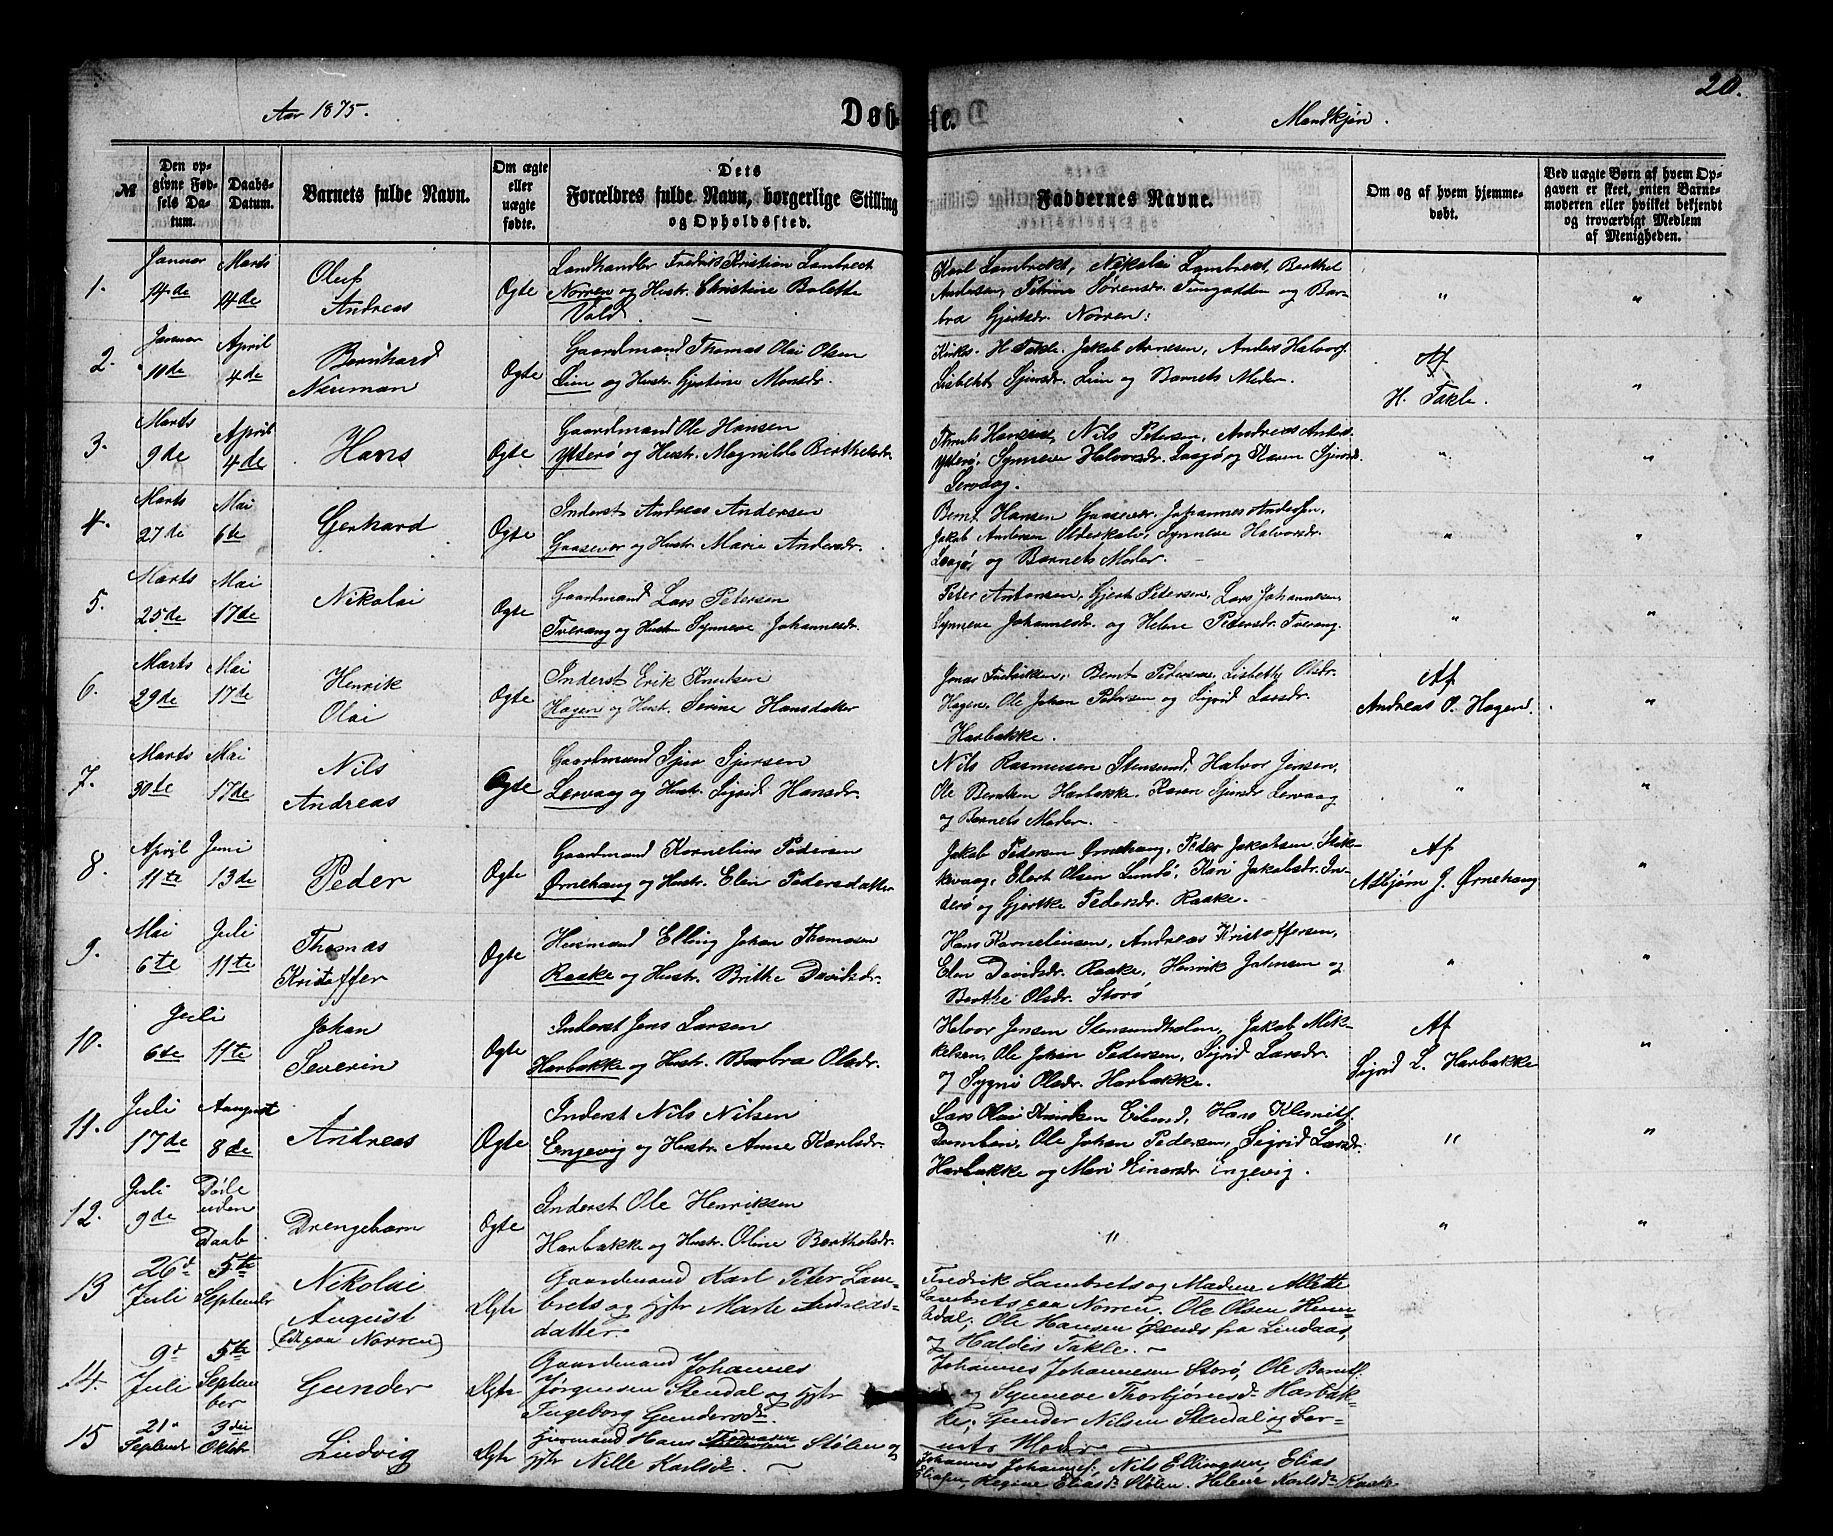 20.
Aar 1875.
Døbte.
Mandkjøn.
№
Den opgivne Fødsels Datum.
Daabs-Datum.
Barnets fulde Navn.
Om ægte eller uægte fødte.
Dets Forældres fulde Navn, borgerlige Stilling og Opholdssted.
Faddernes Navne.
Om og af hvem hjemmedøbt.
Ved uægte Børn af hvem Opgaven er skeet, enten Barnemoderen eller hvilket bekjendt og troværdigt Medlem af Menigheden.
1.
Januar 14de
Marts 14de
Oluf
Andreas
Ogte
Landhandler Fredrik Kristian Lambrect
Norren og Hustr. Christine Bolette
Vold.
Karl Lambrekt, Nikolai Lambrekt, Berthel
Andersen, Petrine Sørensdr. Tungodden og Bar-
bra Gjertsdr. Norren:
"
"
2.
Januar 10de
April 4de
Bernhard
Neuman
Ogte
Gaardmand Thomas Olai Olsen
Lien og Hustr. Gjertine Monsdr.
Kirks. H Takle. Jakob Arnesen, Anders Halvors.
Lisbeth Sjursdr. Lien og Barnets Moder.
Af
H. Takle.
"
3.
Marts 9de
April 4de
Hans
Ogte
Gaardmand Ole Hansen
Ytterø og Hustr. Magnilda Berthelsdr.
Hansen, Nils Petersen, Andreas Anders.
Ytterø, Synneve Halvorsdr. Laagø og Karen Sjursd.
Lervaag.
"
"
4.
Marts 27de
Mai 6te
Gerhard
Ogte
Inderst Andreas Andersen
Gaasevær og Hustr. Marie Andersdr.
Bernt Hansen Gaasevær. Johannes Andersen,
Jakob Andersen Olderskale, Synneve Halvorsdr.
Laagø, og Barnets Moder.
"
"
5.
Marts 25de
Mai 17de
Nikolai
Ogte
Gaardmand Lars Petersen
Tverang og Hustr Synneve Johannesdr.
Peter Antonsen, Gjert Petersen, Lars Johannesen,
Synneve Johannesdr. og Helene Petersdr. Tverang.
"
"
6.
Marts 29de
Mai 17de
Henrik
Olai
Ogte
Inderst Erik Knutsen
Hagen og Hustr. Serine Hansdatter
Jonas Fredriksen, Bernt Petersen, Lisbeth Olsdr.
Hagen, Ole Johan Pedersen og Sigrid Larsdr.
Harbakke.
Af
Andreas O. Hagen.
"
7.
Marts 30te
Mai 17de
Nils
Andreas
Ogte
Gaardmand Sjur Sjursen
Lervaag og Hustr. Sigrid Hansdr.
Nils Rasmussen Stensund, Halvor Jensen,
Ole Berntsen Harbakke. Karen Sjursdr Lervaag
og Barnets Moder.
"
"
8.
April 11te
Juni 13de
Peder
Ogte
Gaardmand Kornelius Pedersen
Ørnehaug og Hustr. Elen Pedersdatter
Jakob Pedersen Ørnehaug, Peder Jakobsen, Stok-
kevaag, Elert Olsen Lundø, Kari Jakobsdr. In-
derø og Gjertke Pedersdr. Raake.
Af
Asbjørn J. Ørnehaug
"
9.
Mai 6te
Juli 11te
Thomas
Kristoffer
Ogte
Husmand Elling Johan Thomasen
Raake og Hustr. Brithe Davidsdr.
Hans Korneliusen, Andreas Kristoffersen,
Elen Davidsdr. Raake, Henrik Jakobsen og
Berthe Olsdr. Storø
"
"
10.
Juli 6te
11te
Johan
Severin
Ogte
Inderst Jens Larsen
Harbakke og Hustr. Barbra Olsdr.
Halvor Jensen Stensundholm, Jakob Mik-
kelsen, Ole Johan Pedersen, Sigrid Larsdr.
og Sygni Olsdr. Harbakke.
Af
Sigrid L. Harbakke
"
11.
Juli 17de
Aaugust 8de
Andreas
Ogte
Inderst Nils Nilsen
Engevig og Hustr. Anne Karlsdr.
Lars Olai Knutsen Eilund, Hans Klemets.
Dumben, Ole Johan Pedersen, Sigrid Larsdr.
Harbakke og Mari Einarsdr. Engevig.
"
"
12.
Juli 9de
Døde uden Daab
Drengebarn
Ogte
Inderst Ole Henriksen
Harbakke og Hustr. Oline Berthelsdr.
"
"
"
13
26d Juli
5te September
Nikolai
August
(Edt paa Norren)
Ægte
Gaardmand Karl Peter Lam-
brets og Hstr Marte Andreas-
datter
Fredrik Lambrets og Madam Allette
Lambrets paa Norren. Ole Olsen Hum-
dal, Ole Hansen fra Lindaas,
og Haldis Takle. —
14.
9d Juli
5te September
Gunder
Ægte
Gaardmand Johannes
Jørgensen Stendal og Hstr
Ingeborg Gundersdr.
Johannes Johannesen Storø, Ole Bernts.
og Synneve Thorbjørnsd. Harbak-
ke, Gunder Nilsen Stendal og Bar-
nets Moder
15
21d Septembr
3die Oktobr
Ludvig
Ægte
Huusmand Hans Stølen og
Hstr Nille Karlsdr. —
Johannes Johannes, Nils Ellingsen, Elias
Eliasen, Regine Eliasd. Stølen. Helene Karlsdr Raake